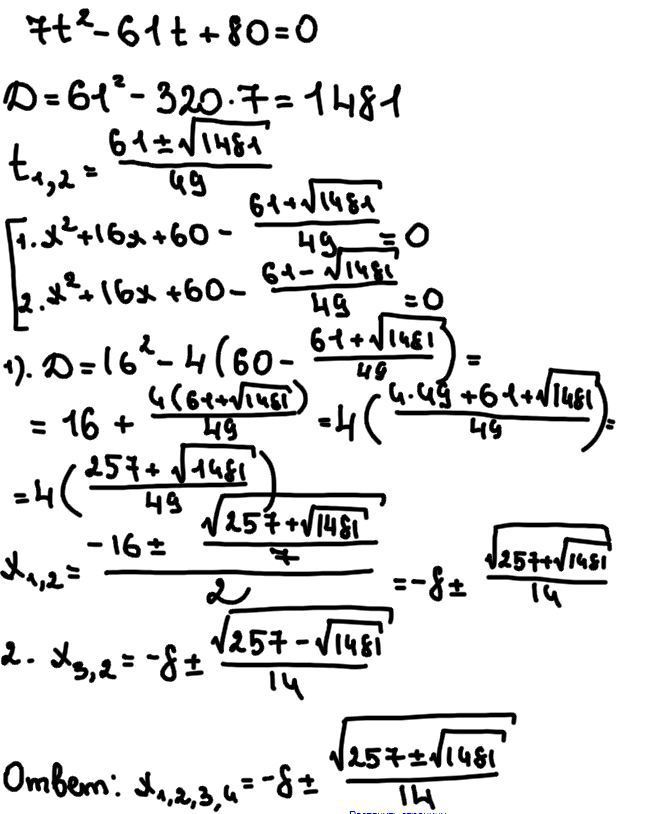 7t²-61t+80=0
D=61²-320·7=1481
t₁,₂=(61±√1481)/49
[1. x²+16x+60-(61+√1481)/49=0
2. x²+16x+60-(61-√1481)/49=0
1). D=16²-4(60-(61+√1481)/49)=
=16+4(61+√1481)/49=4((4·49+61+√1481)/49)=
=4((257+√1481)/49)
x₁,₂=(-16±√(257+√1481)/7)/2=-8±√(257+√1481)/14
2. x₃,₂=-8±√(257-√1481)/14
Ответ: x₁,₂,₃,₄=-8±√(257±√1481)/14